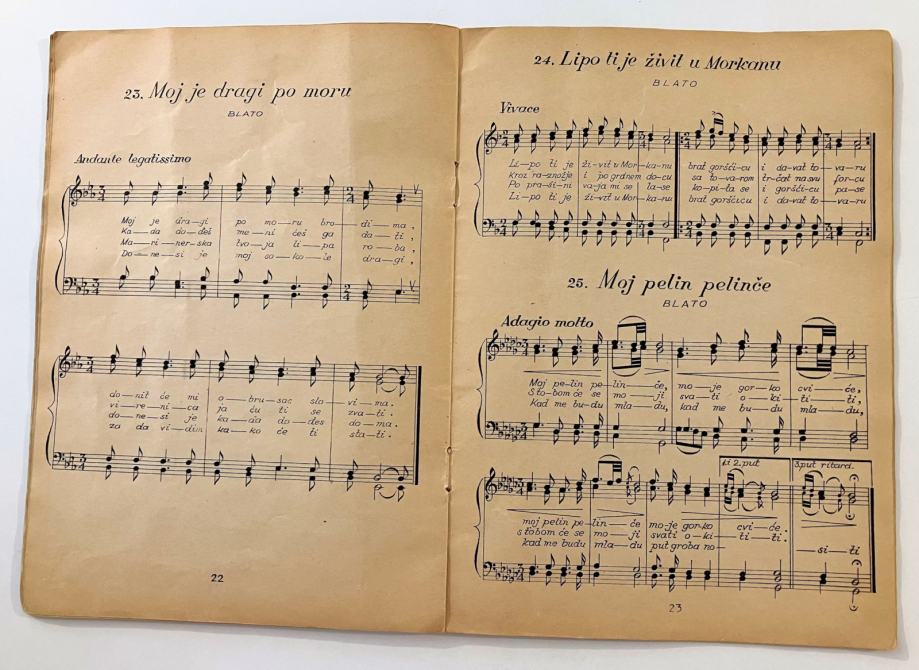 23. Moj je dragi po moru
BLATO
Andante legatissimo
Moj je dra—gi po mo—ru bro—di—ma,
Ka—da do—deš me—ni ćeš ga da—ti,
Ma—ri—ner—ska tvo—ja li—pa ro—ba,
Do—ne—si je moj so—ko—le dra—gi,
do—nit će mi o—bru—sac sla—vi—ma.
vi—re—ni—ca ja ću ti se zva—ti.
do—ne—si je ka—da do—deš do—ma.
za da vi—dim ka—ko će ti sta—ti.
22
24. Lipo ti je živit u Morkanu
BLATO
Vivace
Li—po ti je ži—vit u Mor—ka—nu brat goršći—cu i da—vat to—va—ru
kroz ra—znožje i po grdnem do—cu sa to—va—rom tr—čat na svu for—cu
Po pra—ši—ni va—ja mi se la—se ko—pi—ta se i goršći—cu pa—se
Li—po ti je ži—vit u Mor—ka—nu brat goršćicu i da—vat to—va—ru
25. Moj pelin pelinče
BLATO
Adagio molto
Moj pe—lin pe—lin—če, mo—je gor—ko cvi—će,
S tobom će se mo—ji sva—ti o—ki—ti—ti,
Kad me bu—du mla—du, kad me bu—du mla—du,
1.i 2.put 3.put ritard.
moj pelin pe—lin—če mo—je gorko cvi—će.
s tobom će se mo—ji svati o—ki—ti—ti.
kad me budu mla—du put groba no— —si—ti
23